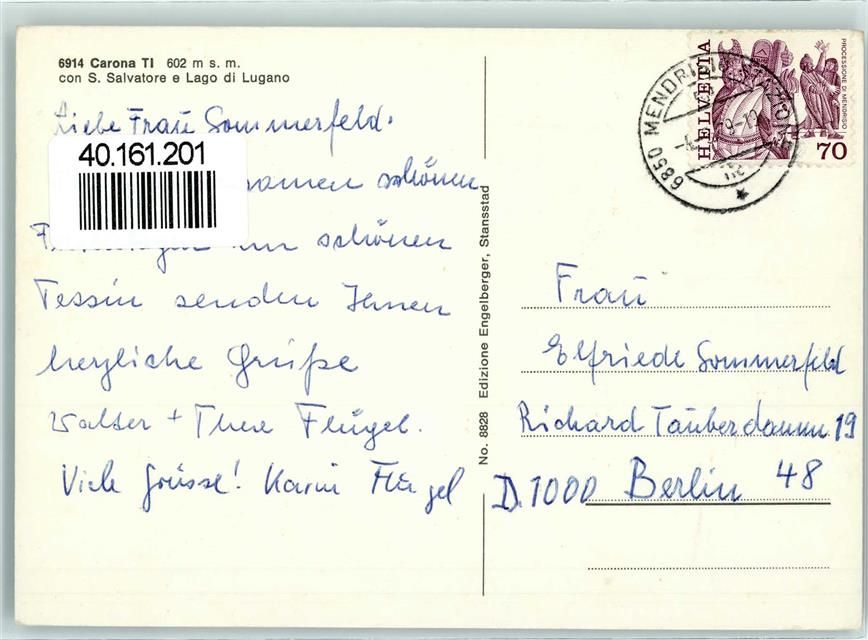 6914 Carona TI 602 m s. m.
con S. Salvatore e Lago di Lugano
Liebe Frau Sommerfeld.
40.161.201
schönen
schönen
Tessin senden Ihnen
herzliche Grüße
Walter + Thea Flügel.
Viele Grüsse! Karin Flügel
No. 8828 Edizione Engelberger, Stansstad
6850 MENDRISIO
HELVETIA
PROCESSIONE DI MENDRISIO
70
Frau
Elfriede Sommerfeld
Richard Tauberdamm 19
D. 1000 Berlin 48